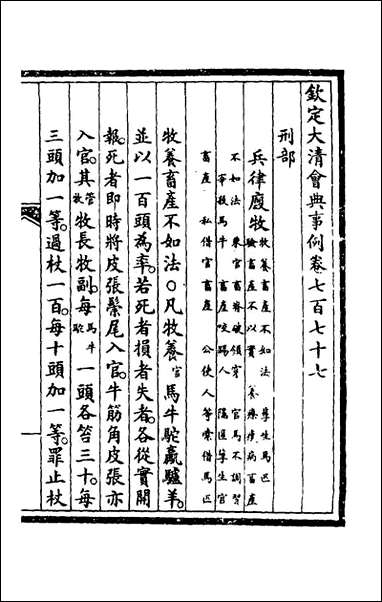 欽定大清會典事例卷七百七十七
刑部
兵律廄牧 牧養畜產不如法 孳生馬匹
驗畜產不以實 養療瘦病畜產
不如法 乘官畜脊破領穿 官馬不調習
宰殺馬牛 畜產咬踢人 隱匿孳生官
畜產 私借官畜產 公使人等索借馬匹
牧養畜產不如法○凡牧養官馬牛駝驘驢羊。
並以一百頭為率。若死者損者失者。各從實開
報。死者即時將皮張鬃尾入官。牛筋角皮張亦
入官。其管牧牧長牧副。每馬牛駝一頭各笞三十。每
三頭加一等。過杖一百。每十頭加一等。罪止杖